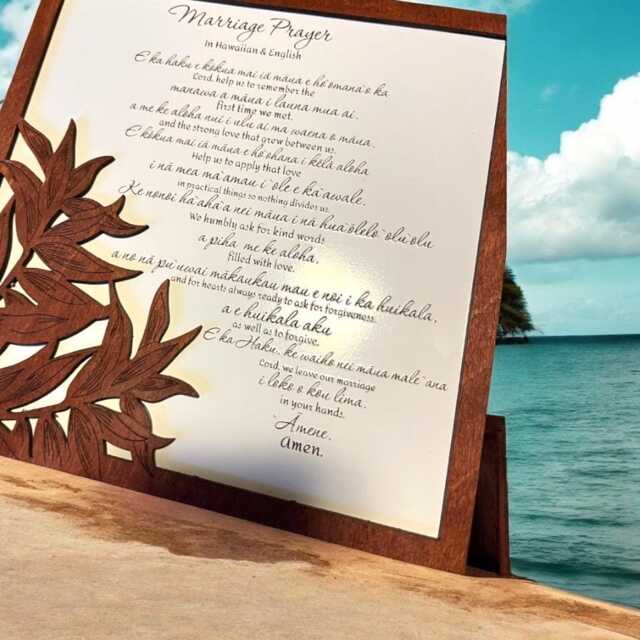 Marriage Prayer
In Hawaiian & English
E ka haku e kōkua mai iā māua e ho'omana'o ka
Lord, help us to remember the
manawa a māua i launa mua ai.
first time we met.
a me ke aloha nui i ulu ai ma waena o māua.
and the strong love that grew between us.
E kōkua mai iā māua e ho'ohana i kēlā aloha
Help us to apply that love
i nā mea ma'amau i 'ole e ka'awale.
in practical things so nothing divides us.
Ke nonoi ha'aha'a nei māua i nā hua'ōlelo 'olu'olu
We humbly ask for kind words
a piha me ke aloha,
filled with love.
a no nā pu'uwai mākaukau mau e noi i ka huikala,
and for hearts always ready to ask for forgiveness
a e huikala aku
as well as to forgive.
E ka Haku, ke waiho nei māua male'ana
Lord, we leave our marriage
i loko o kou lima.
in your hands.
'Amene.
Amen.